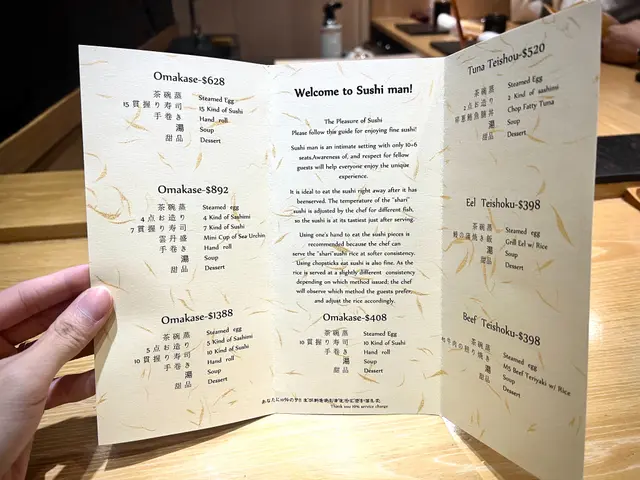 Omakase-$628
茶碗蒸 Steamed Egg
15貫握り寿司 15 Kind of Sushi
手巻き Hand roll
湯 Soup
甜品 Dessert
Omakase-$892
茶碗蒸 Steamed egg
4点お造り 4 Kind of Sashimi
7貫握り寿司 7 Kind of Sushi
雲丹盛 Mini Cup of Sea Urchin
手巻き Hand roll
湯 Soup
甜品 Dessert
Omakase-$1388
茶碗蒸 Steamed egg
5点お造り 5 Kind of Sashimi
10貫握り寿司 10 Kind of Sushi
手巻き Hand roll
湯 Soup
甜品 Dessert
Welcome to Sushi man!
The Pleasure of Sushi
Please follow this guide for enjoying fine sushi!
Sushi man is an intimate setting with only 10+6
seats.Awareness of, and respect for fellow
guests will help everyone enjoy the unique
experience.
It is ideal to eat the sushi right away after it has
beenserved. The temperature of the "shari"
sushi is adjusted by the chef for different fish,
so the sushi is at its tastiest just after serving.
Using one's hand to eat the sushi pieces is
recommended because the chef can
serve the "shari"sushi rice at softer consistency.
Using chopsticks eat sushi is also fine. As the
rice is served at a slightly different consistency
depending on which method issued; the chef
will observe which method the guests prefer,
and adjust the rice accordingly.
Omakase-$408
茶碗蒸 Steamed Egg
10貫握り寿司 10 Kind of Sushi
手巻き Hand roll
湯 Soup
甜品 Dessert
Thank you 10% service charge
Tuna Teishou-$520
茶碗蒸 Steamed Egg
2点お造り 2 Kind of sashimi
Chop Fatty Tuna
湯 Soup
甜品 Dessert
Eel Teishoku-$398
茶碗蒸 Steamed egg
Grill Eel w/ Rice
湯 Soup
甜品 Dessert
Beef Teishoku-$398
茶碗蒸 Steamed egg
M5 Beef Teriyaki w/ Rice
湯 Soup
甜品 Dessert